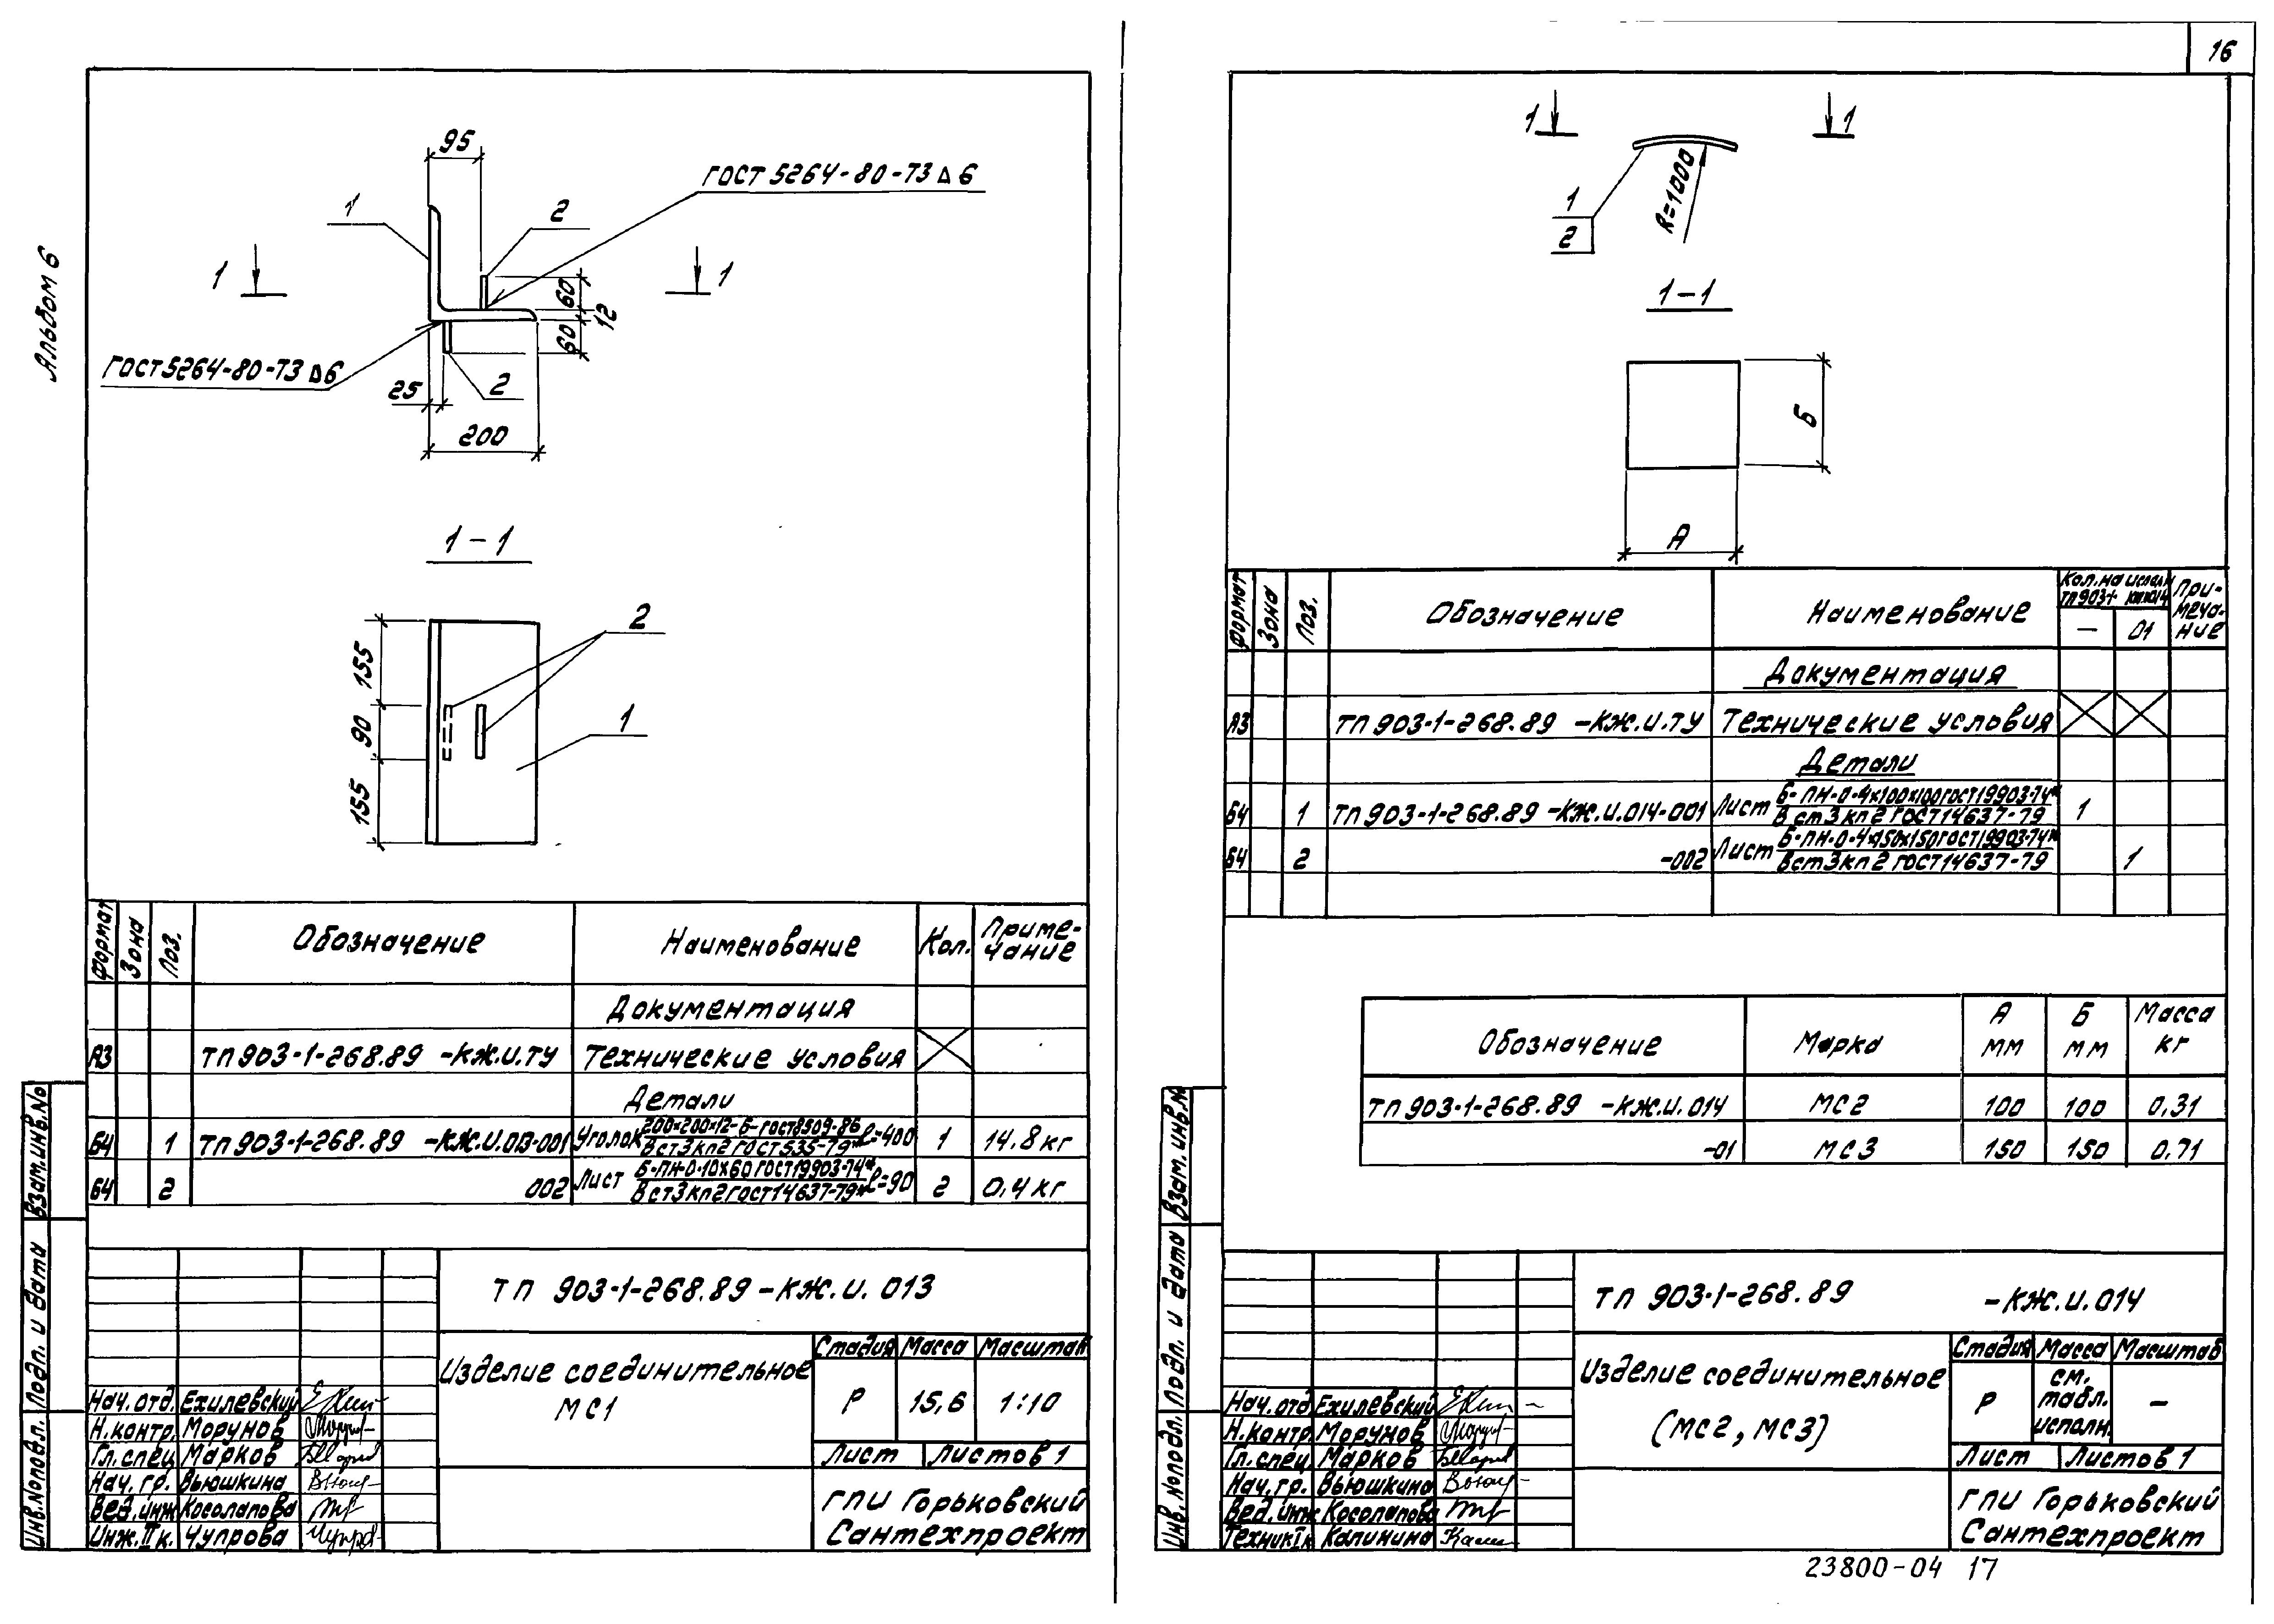 Альбом 6
95
ГОСТ 5264-80-Т3 ⊿ 6
1
2
1
1
60
12
60
ГОСТ 5264-80-Т3 ⊿6
2
25
200
1-1
2
155
90
155
1
Формат
Зона
Поз.
Обозначение
Наименование
Кол.
Приме-
чание
Документация
А3 ТП 903-1-268.89 -КЖ.И.ТУ Технические условия
Детали
Б4 1 ТП 903-1-268.89 -КЖ.И.013-001 Уголок 200×200×12-Б-ГОСТ8509-86 ℓ=400 1 14.8 кг
Вст3кп2 ГОСТ535-79*
Б4 2 002 Лист Б-ПН-0-10×60 ГОСТ19903-74* ℓ=90 2 0,4 кг
Вст3кп2 ГОСТ14637-79*
Взам.инв.№
Подп. и дата
Инв.№подл.
ТП 903-1-268.89 -КЖ.И. 013
Изделие соединительное
МС1
Стадия Масса Масштаб
Р 15,6 1:10
Лист Листов 1
Нач.отд. Ехилевский
Н.контр. Морунов
Гл.спец. Марков
Нач.гр. Вьюшкина
Вед.инж. Косолапова
Инж.II к. Чупрова
ГПИ Горьковский
Сантехпроект
16
1
1
R=1000
1
2
1-1
Б
А
Формат
Зона
Поз.
Обозначение
Наименование
Кол.на исполн
ТП903-1
- 01
При-
меча-
ние
Документация
А3 ТП 903-1-268.89 -КЖ.И.ТУ Технические условия
Детали
Б4 1 ТП 903-1-268.89 -КЖ.И.014-001 Лист Б-ПН-0-4×100×100 ГОСТ19903-74* 1
Вст3кп2 ГОСТ14637-79
Б4 2 -002 Лист Б-ПН-0-4×150×150 ГОСТ19903-74* 1
Вст3кп2 ГОСТ14637-79
Обозначение Марка А мм Б мм Масса кг
ТП 903-1-268.89 -КЖ.И.014 МС2 100 100 0,31
-01 МС3 150 150 0,71
Взам.инв.№
Подп. и дата
Инв.№подл.
ТП 903-1-268.89 -КЖ.И.014
Изделие соединительное
(МС2, МС3)
Стадия Масса Масштаб
Р см. табл. исполн. -
Лист Листов 1
Нач.отд Ехилевский
Н.контр. Морунов
Гл.спец. Марков
Нач.гр. Вьюшкина
Вед.инж Косолапова
Техник Iк Калинина
ГПИ Горьковский
Сантехпроект
23800-04 17